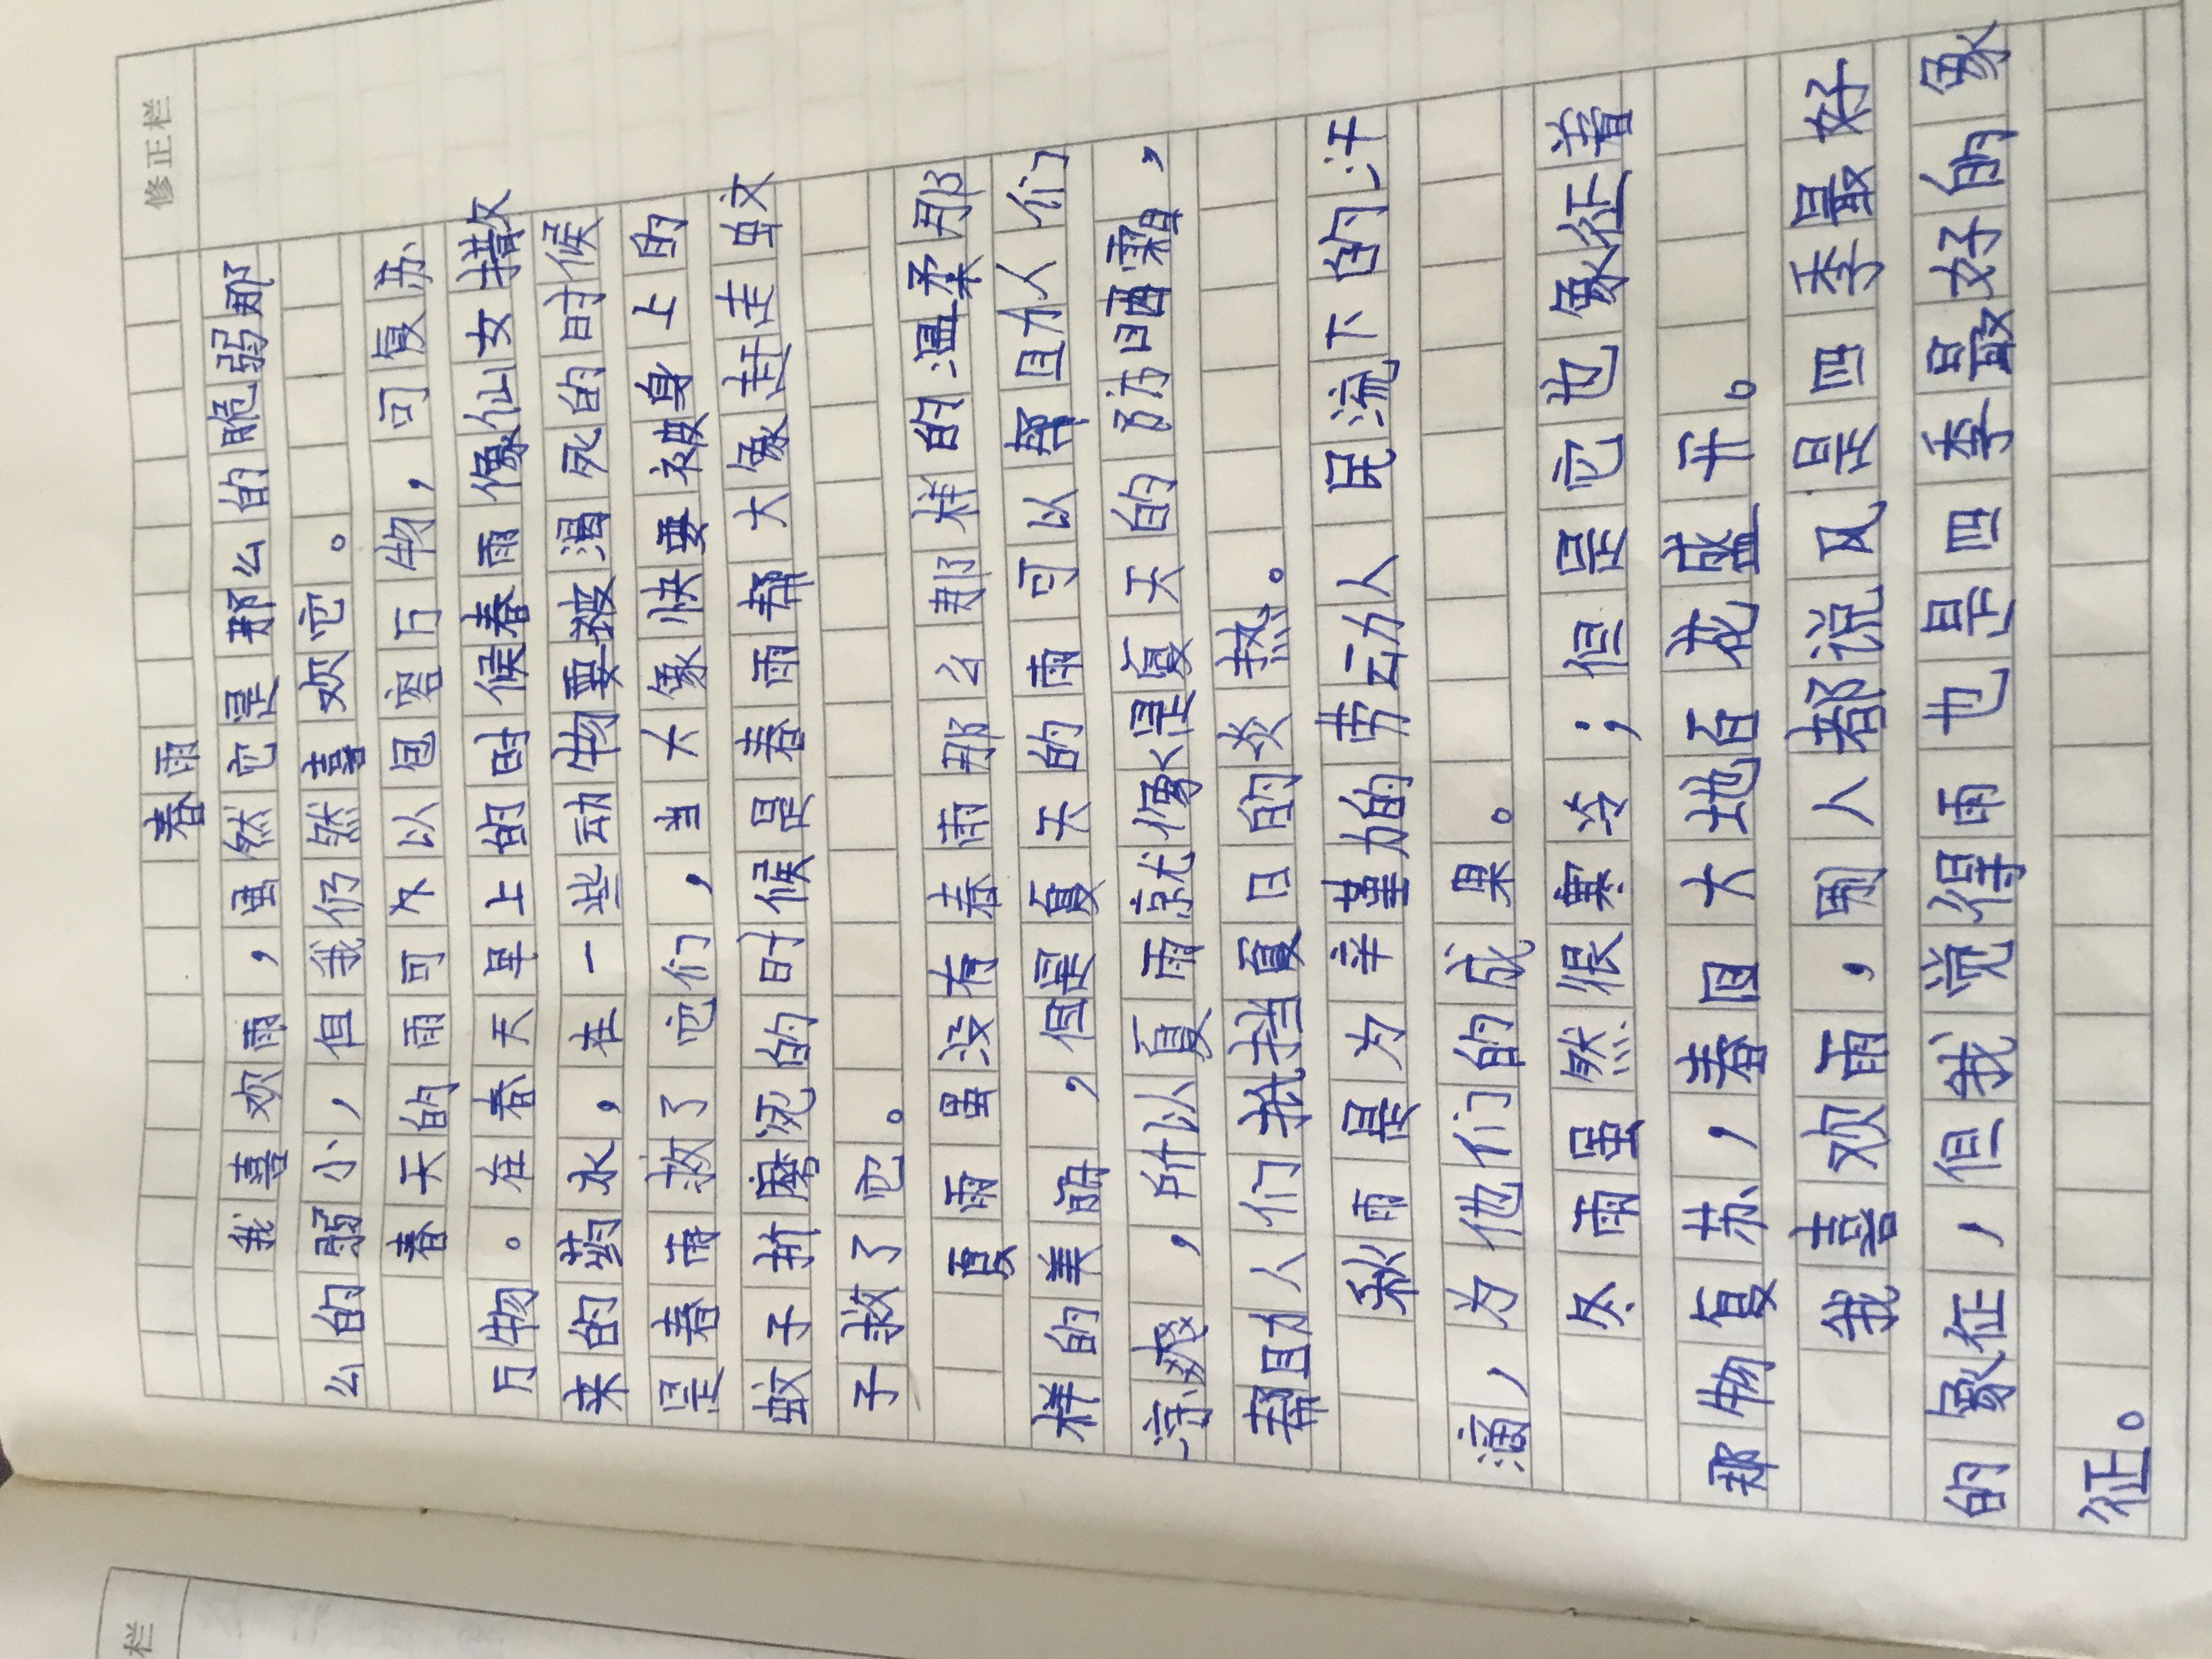 修正栏
春雨
我喜欢雨，虽然它是那么的脆弱那
么的弱小，但我仍然喜欢它。
春天的雨可不以包容万物，可复苏
万物。在春天早上的时候春雨像仙女撒
来的药水，在一些动物要被渴死的时候
是春雨救了它们，当大像快要被身上的
蚊子折磨死的时候是春雨帮大像赶走蚊
子救了它。
夏雨虽没有春雨那么那样的温柔那
样的美丽，但是夏天的雨可以帮助人们
凉爽，所以夏雨就像是夏天的防晒霜，
帮助人们抵挡夏日的炎热。
秋雨是为辛堇力的劳云力人民流下的汗
滴，为他们的成果。
冬雨虽然很寒冷；但是它也象征着
那物复苏，春回大地百花盛开。
我喜欢雨，别人都说风是四季最好
的象征，但我觉得雨也是四季最好的象
征。
栏